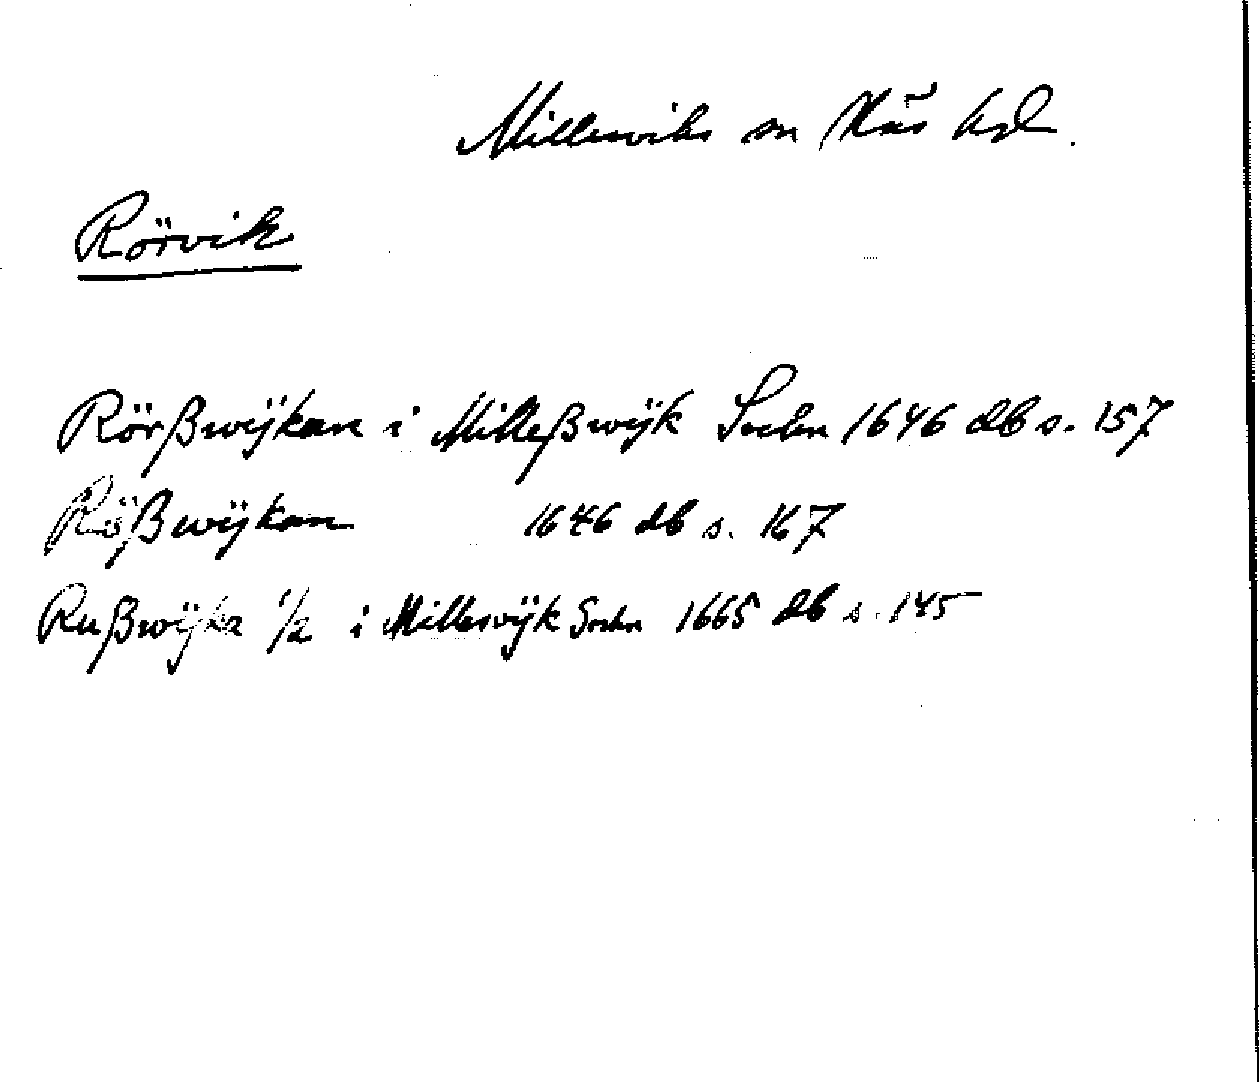 Millesviks sn Näs hd.
Rörvik
Rörßwijkan i Milleßwijk Sochn 1646 db s. 157
Rößwijkan 1646 db s. 167
Rußwijka 1/2 i Milleswijk Sochn 1665 db s. 145